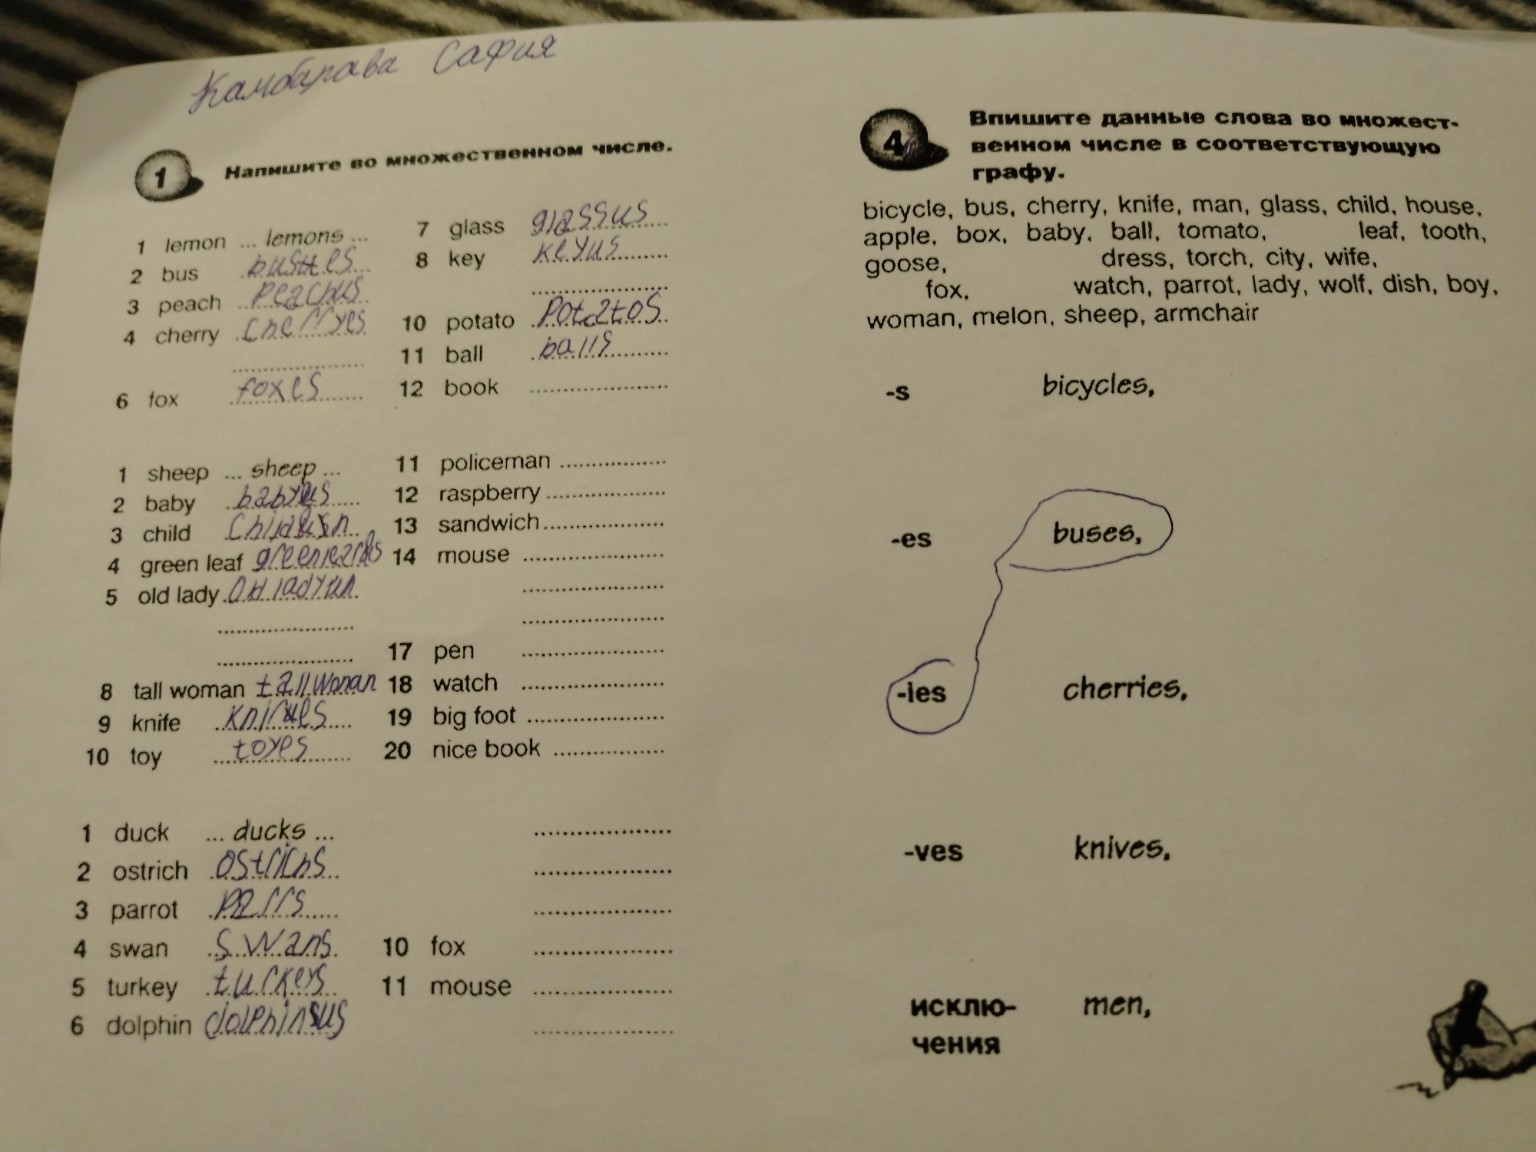 Камбарава Сафия
1 Напишите во множественном числе.
1 lemon ... lemons ...
2 bus
3 peach peachus
4 cherry cherryes
6 fox foxes
7 glass glassus
8 key keyus
10 potato potatos
11 ball balls
12 book
1 sheep ... sheep ...
2 baby
3 child
4 green leaf
5 old lady
8 tall woman tall woman
9 knife
10 toy toyes
11 policeman
12 raspberry
13 sandwich
14 mouse
17 pen
18 watch
19 big foot
20 nice book
1 duck ... ducks ...
2 ostrich ostrichs
3 parrot parrs
4 swan swans
5 turkey turkeys
6 dolphin dolphinsus
10 fox
11 mouse
4 Впишите данные слова во множест-
венном числе в соответствующую
графу.
bicycle, bus, cherry, knife, man, glass, child, house,
apple, box, baby, ball, tomato, leaf, tooth,
goose, dress, torch, city, wife,
fox, watch, parrot, lady, wolf, dish, boy,
woman, melon, sheep, armchair
-s bicycles,
-es buses,
-ies cherries,
-ves knives,
исклю- men,
чения